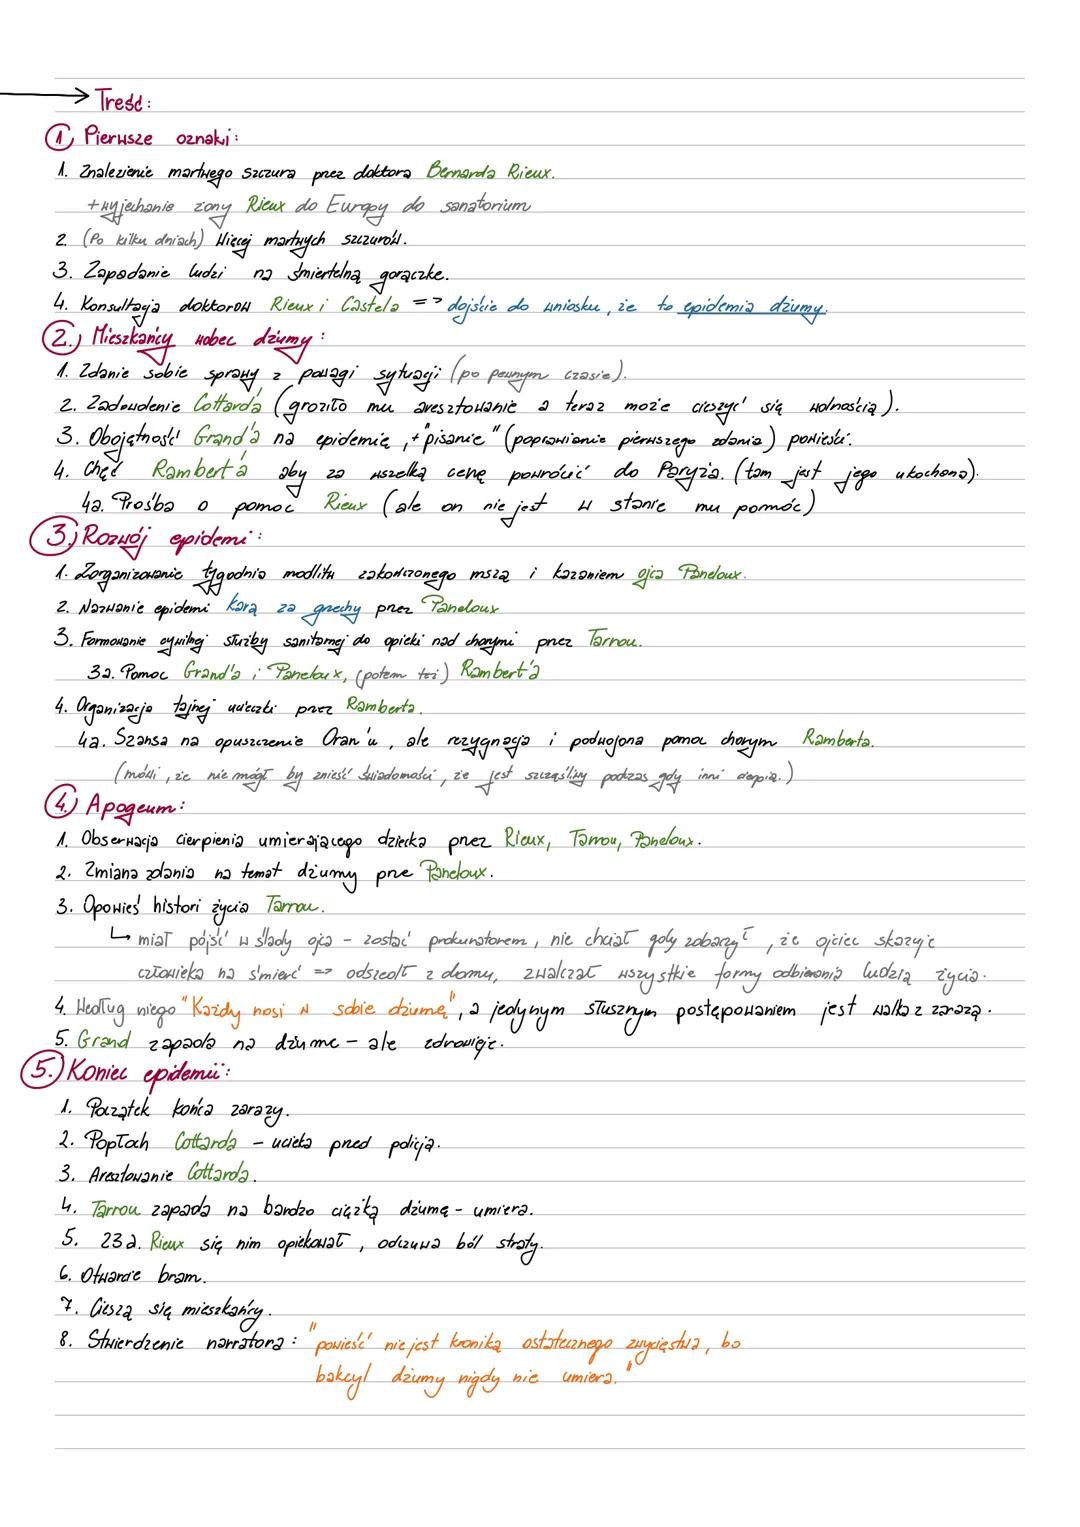 → Treść:
① Pierwsze oznaki:
1. Znalezienie martwego szczura przez doktora Bernarda Rieux.
+ wyjechanie żony Rieux do Europy do sanatorium
2. (Po kilku dniach) Więcej martwych szczurów.
3. Zapadanie ludzi na śmiertelną gorączkę.
4. Konsultacja doktorów Rieux i Castela => dojście do wniosku, że to epidemia dżumy.
2.) Mieszkańcy wobec dżumy:
1. Zdanie sobie sprawy z powagi sytuacji (po pewnym czasie).
2. Zadowolenie Cottard'a (groziło mu aresztowanie a teraz może cieszyć się wolnością).
3. Obojętność Grand'a na epidemię, + "pisanie" (poprawianie pierwszego zdania) powieści.
4. Chęć Rambert'a aby za wszelką cenę powrócić do Paryża. (tam jest jego ukochana).
4a. Prośba o pomoc Rieux (ale on nie jest w stanie mu pomóc)
3.) Rozwój epidemi:
1. Zorganizowanie tygodnia modlitw zakończonego mszą i kazaniem ojca Paneloux.
2. Nazwanie epidemi karą za grzechy przez Paneloux
3. Formowanie cywilnej służby sanitarnej do opieki nad chorymi przez Tarrou.
3a. Pomoc Grand'a i Paneloux, (potem też) Rambert'a
4. Organizacja tajnej ucieczki przez Ramberta.
4a. Szansa na opuszczenie Oran'u, ale rezygnacja i podwojona pomoc chorym Ramberta.
(mówi, że nie mógł by znieść świadomości, że jest szczęśliwy podczas gdy inni cierpią.)
4.) Apogeum:
1. Obserwacja cierpienia umierającego dziecka przez Rieux, Tarrou, Paneloux.
2. Zmiana zdania na temat dżumy prze Paneloux.
3. Opowieś histori życia Tarrou.
↳ miał pójść w ślady ojca - zostać prokuratorem, nie chciał gdy zobaczył, że ojciec skazuje
człowieka na śmierć => odszedł z domu, zwalczał wszystkie formy odbierania ludzią życia.
4. Według niego "Każdy nosi w sobie dżumę", a jedynym słusznym postępowaniem jest walka z zarazą.
5. Grand zapada na dżumę - ale zdrowieje.
5.) Koniec epidemii:
1. Początek końca zarazy.
2. Popłoch Cottarda - ucieka przed policją.
3. Aresztowanie Cottarda.
4. Tarrou zapada na bardzo ciężką dżumę - umiera.
5. Rieux się nim opiekował, odczuwa ból straty.
6. Otwarcie bram.
7. Cieszą się mieszkańcy.
8. Stwierdzenie narratora: "powieść nie jest kroniką ostatecznego zwycięstwa, bo
bakcyl dżumy nigdy nie umiera."